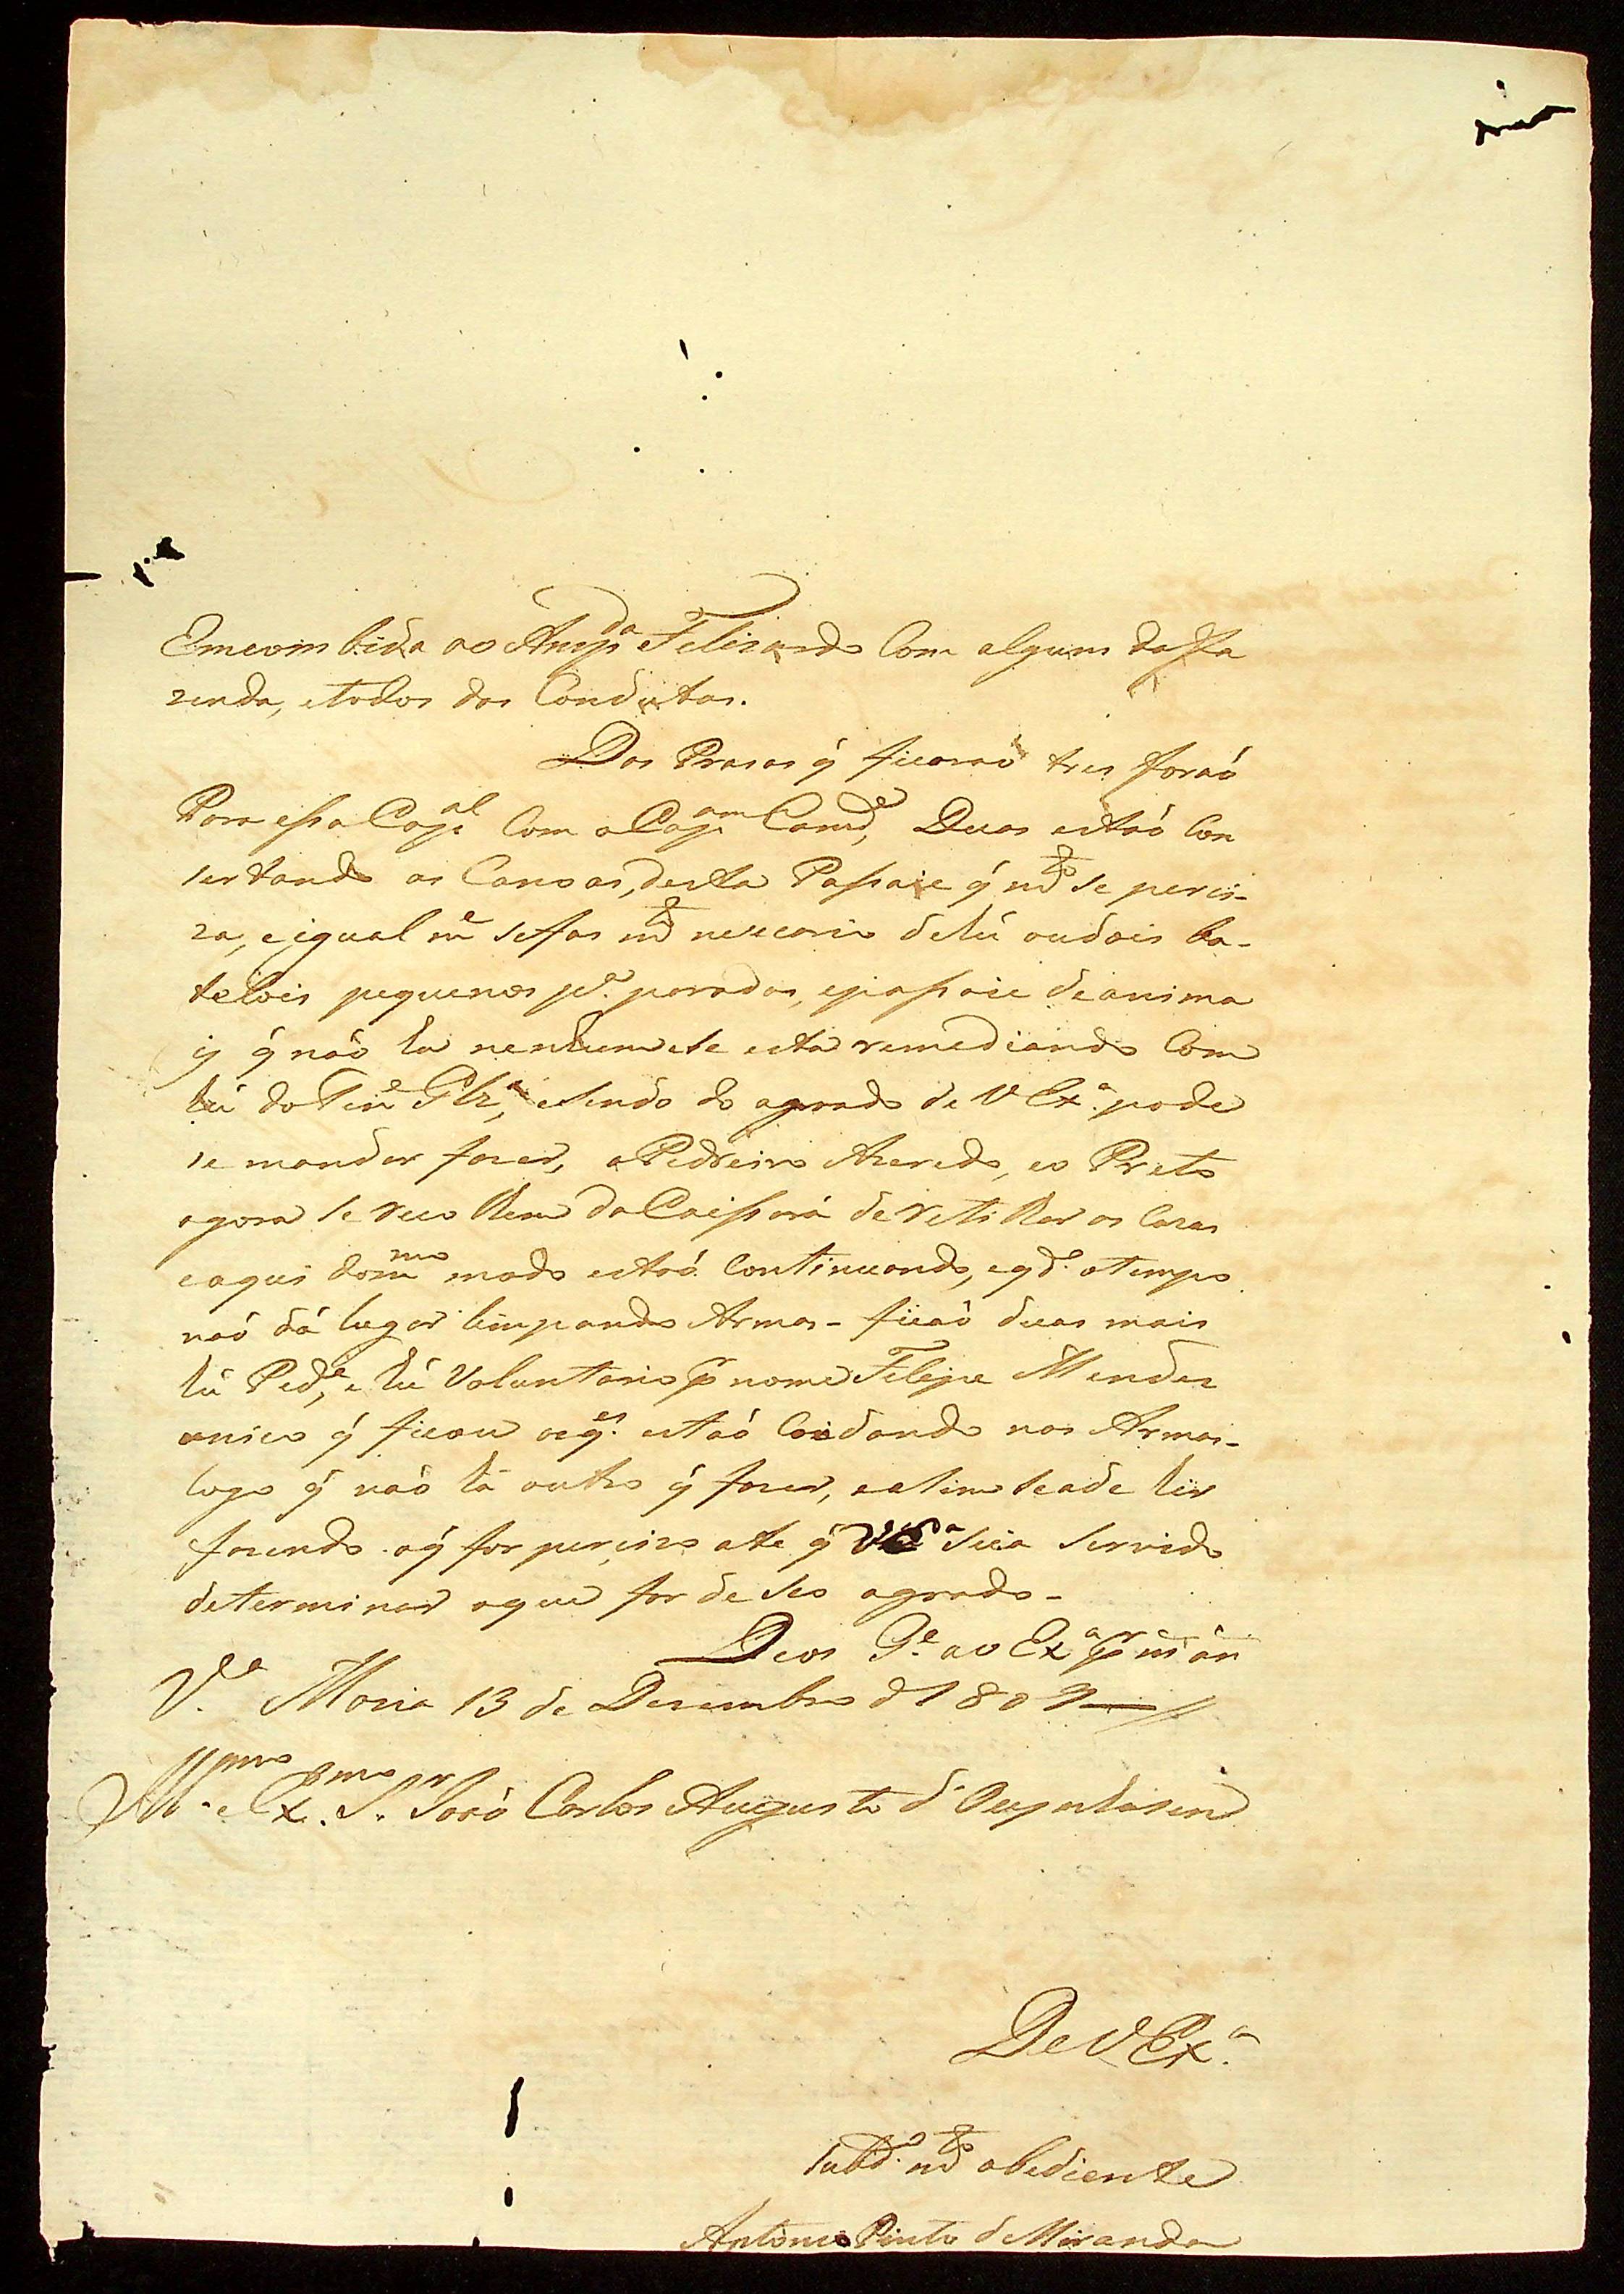 Emcoimbida ao Ansp.da Felizardo Com algum da Fa
zenda, etodos das Condutas.
Das Prasas q̃ ficaraõ tres foraõ
Para essa Cap.al Com o Cap.am Comd.e, Duas estaõ Con
sertando as Canoas, desta Passaie q̃ m.to se percis-
za, e igual m.e se fas m.to nececario de hũ ou dois ba-
telois pequenos p.a paradas, e passaie de anima
is q̃ naõ ha nenhum e se esta remediando Com
hũ do Ten.e, e sendo do agrado de V Ex.a pode
se mandar fazer, o Pedreiro Azevedo, eo Preto
agora se recolhem da de retilhar as Cazas
eaqui do m.mo modo estaõ Continuando, e q.do o tempo
naõ dá lugar limpando Armas - ficaõ duas mais
hũ Ped.e, e hũ Voluntario p.r nome Felipe Mendes
unico q̃ ficou os q.es estaõ Coidando nas Armas-
logo q̃ naõ há outro q̃ fazer, e assim se a de hir
fazendo o q̃ for perciso ate q̃ V Ex.a seia Servido
determinar o que for de seo agrado-
Deos G.e a V Ex.a p.r m.s an.s
V.a Maria 13 de Dezembro d 1809
Ill.mo e Ex.mo S.r Joaõ Carlos Augusto d'Oeynhasen
De V Ex.a
Subd.o m.to obediente
Antonio Pinto d Miranda